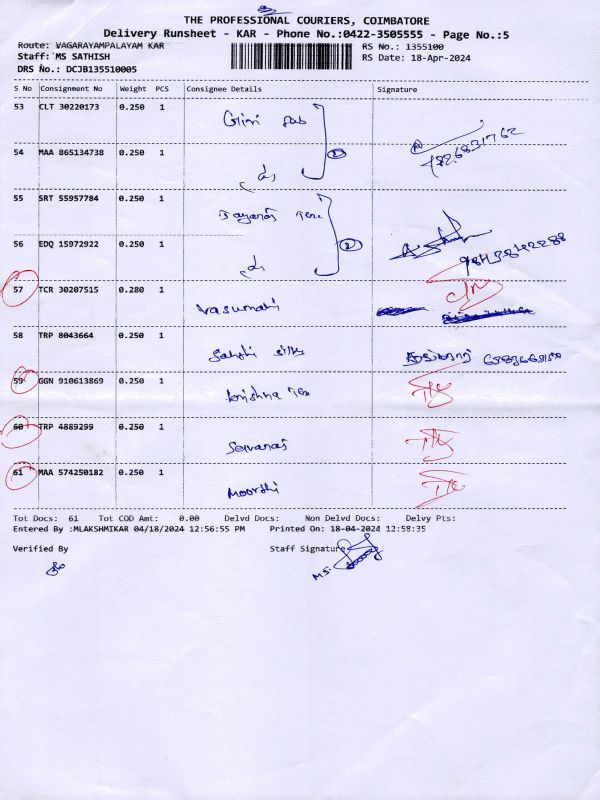 THE PROFESSIONAL COURIERS, COIMBATORE
Delivery Runsheet - KAR - Phone No.:0422-3505555 - Page No.:5
Route: VAGARAYAMPALAYAM KAR RS No.: 1355100
Staff: MS SATHISH RS Date: 18-Apr-2024
DRS No.: DCJB135510005
S No Consignment No Weight PCS Consignee Details Signature
53 CLT 30220173 0.250 1
54 MAA 865134738 0.250 1
55 SRT 55957784 0.250 1
56 EDQ 15972922 0.250 1
57 TCR 30207515 0.280 1 Vasumathi
58 TRP 8043664 0.250 1 Sakthi silks
59 GGN 910613869 0.250 1 krishna
60 TRP 4889299 0.250 1 Selvaraj
61 MAA 574250182 0.250 1 Moorthi
Tot Docs: 61 Tot COD Amt: 0.00 Delvd Docs: Non Delvd Docs: Delvy Pts:
Entered By :MLAKSHMIKAR 04/18/2024 12:56:55 PM Printed On: 18-04-2024 12:58:35
Verified By Staff Signature